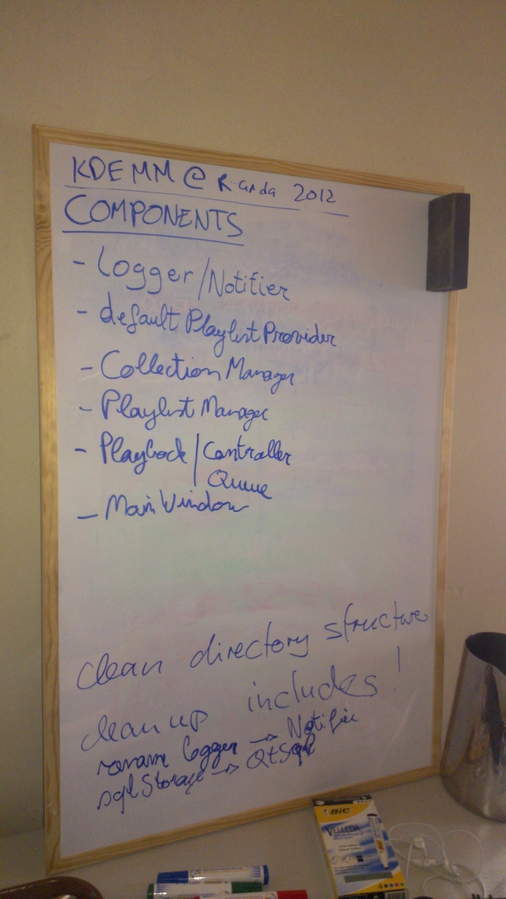 KDEMM @ Randa 2012
COMPONENTS
- Logger/Notifier
- default Playlist Provider
- Collection Manager
- Playlist Manager
- Playback/Controller
Queue
- Main Window
clean directory structure
clean up includes!
rename logger → Notifier
sqlStorage → QtSql
BIC
VELLEDA